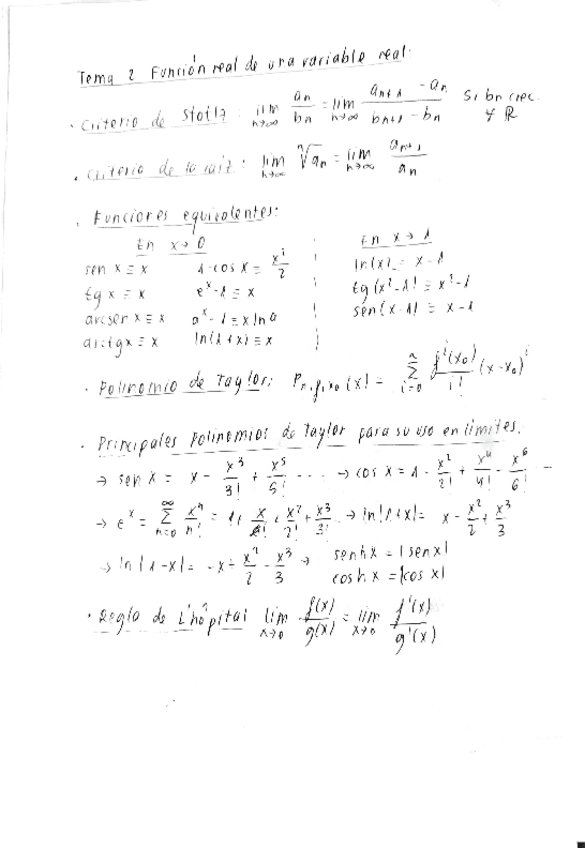 Tema 2 Función real de una variable real.
· Criterio de Stoltz: lim n→∞ an/bn = lim n→∞ (an+1 - an)/(bn+1 - bn) Si bn crec.
y ℝ
· Criterio de la raíz: lim n→∞ ⁿ√an = lim n→∞ an+1/an
· Funciones equivalentes:
En x→0 En x→1
sen x ≡ x 1-cos x = x²/2 ln(x) = x-1
tg x ≡ x eˣ-1 ≡ x tg(x²-1) ≡ x²-1
arcsen x ≡ x aˣ-1 ≡ x ln a sen(x-1) ≡ x-1
arctgx ≡ x ln(1+x) ≡ x
· Polinomio de Taylor: Pn,f,x0(x) = Σ i=0 n fⁱ(x0)/i! (x-x0)ⁱ
· Principales Polinomios de Taylor para su uso en límites.
→ sen x = x - x³/3! + x⁵/5! .... → cos x = 1 - x²/2! + x⁴/4! - x⁶/6! --
→ eˣ = Σ n=0 ∞ xⁿ/n! = 1+ x/1! + x²/2! + x³/3! → ln(1+x) = x - x²/2 + x³/3
→ ln(1-x) = -x + x²/2 - x³/3 → senh x = |sen x|
cosh x = |cos x|
· Regla de L'hôpital lim x→0 f(x)/g(x) = lim x→0 f'(x)/g'(x)